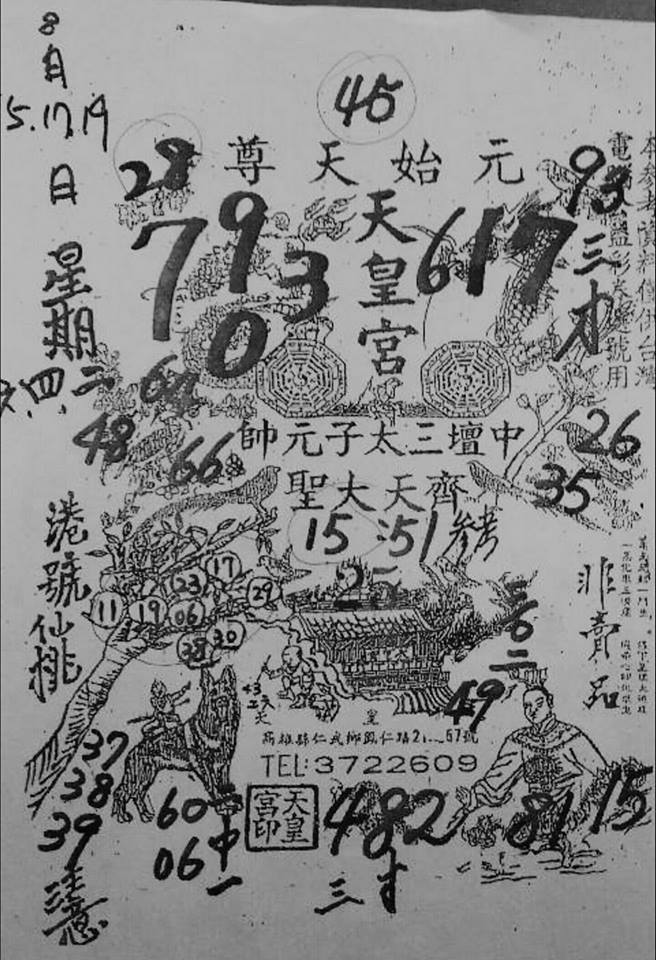 8
月
15.17.19
日
星期
四.二
港號仙桃
45
28
元始天尊
93
天皇宮
79
3
0
617
三才
本參考資料僅供台灣
電 益彩 號用
64
48
66
中壇三太子元帥
26
35
齊天大聖
15 51 參考
25
17
23
29
11
19
06
38
30
非賣品
49
43
天皇
高雄縣仁武鄉鳳仁路21-57號
TEL:3722609
37
38
39
注意
60
06
二中一
天皇宮印
482
三才
81
15